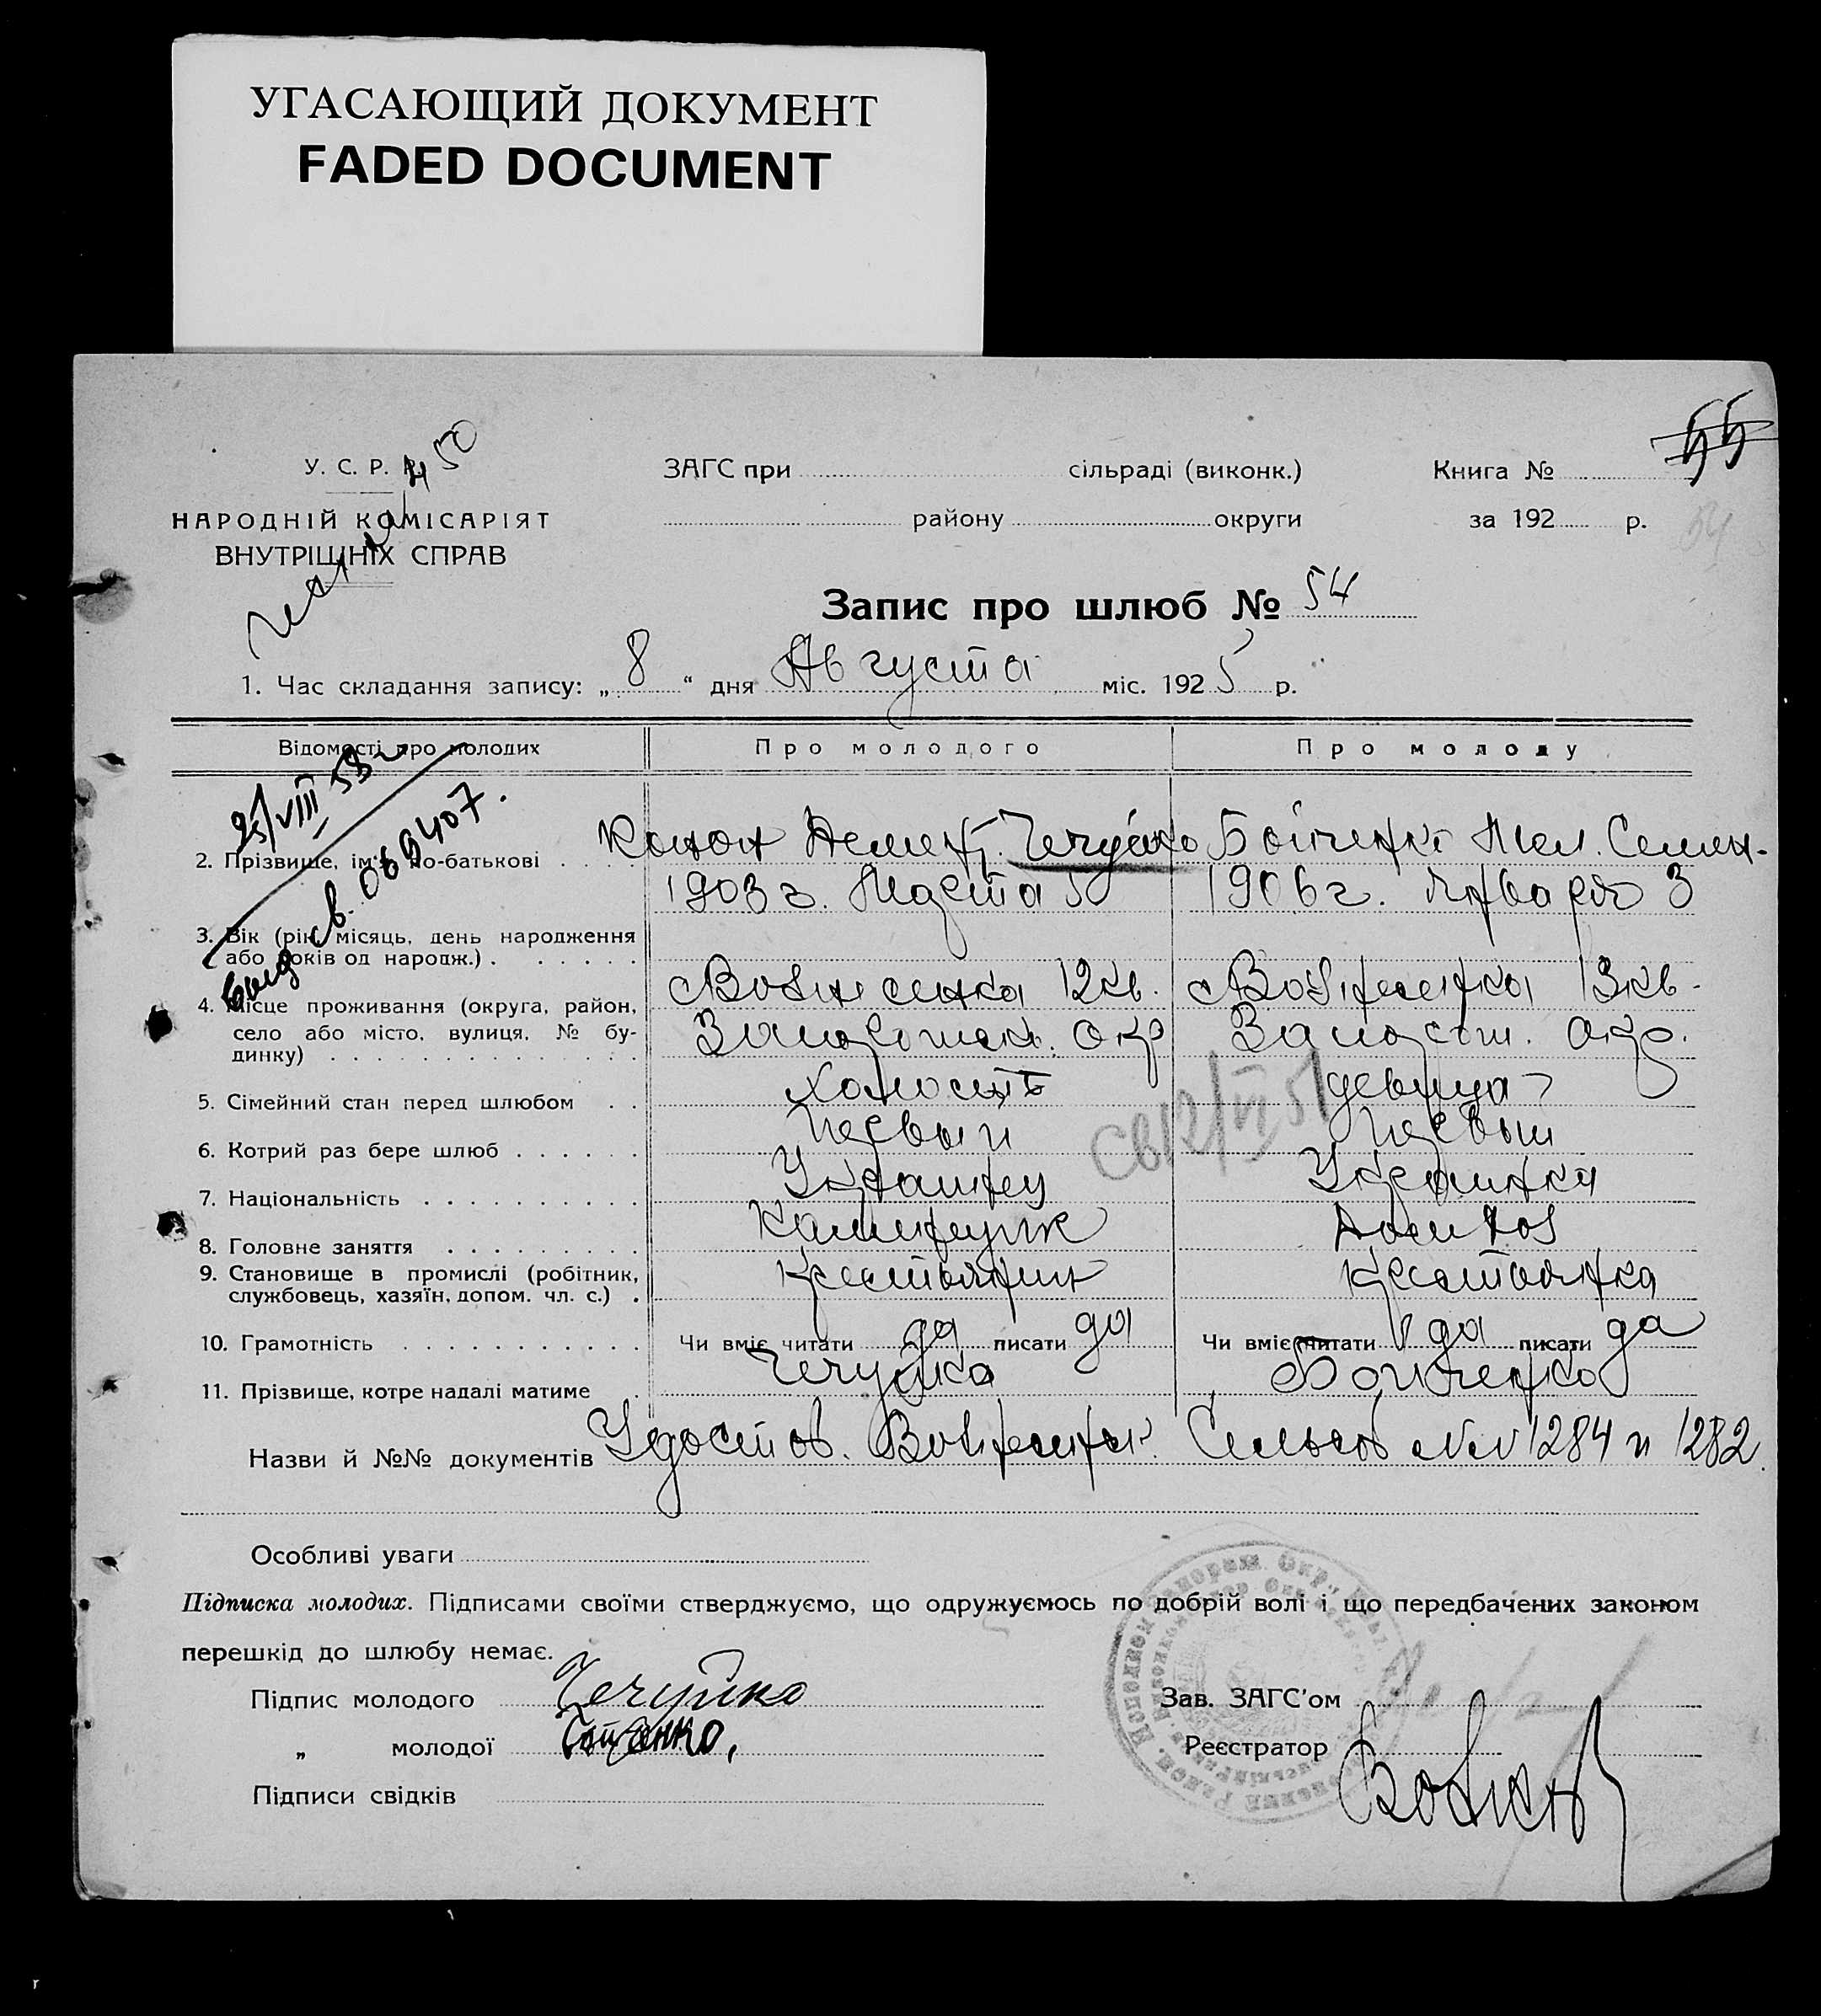 УГАСАЮЩИЙ ДОКУМЕНТ
FADED DOCUMENT
55
У. С. Р. Р.
НАРОДНІЙ КОМІСАРІЯТ
ВНУТРІШНІХ СПРАВ
ЗАГС при сільраді (виконк.) Книга №
району округи за 192 р.
54
Запис про шлюб № 54
1. Час складання запису: „ 8 “ дня Августа міс. 1925 р.
Відомості про молодих Про молодого Про молоду
25/VIII 58г
св. 069407.
2. Прізвище, ім'я, по-батькові Конон Чечуйко Бойченко Семен.
1903 г. Марта 5 1906 г. Января 3
3. Вік (рік, місяць, день народження
або років од народж.)
4. Місце проживання (округа, район, Вознесенка 12 кв. Вознесенка 13 кв.
село або місто, вулиця, № бу- Запорожск. окр Запорож. окр.
динку)
5. Сімейний стан перед шлюбом холост девица
6. Котрий раз бере шлюб Первый Первый
св 12/VI 51
7. Національність Украинец Украинка
8. Головне заняття Домхоз
9. Становище в промислі (робітник, Крестьянин Крестьянка
службовець, хазяїн, допом. чл. с.)
10. Грамотність Чи вміє читати да писати да Чи вміє читати да писати да
11. Прізвище, котре надалі матиме Чечуйко Бойченко
Назви й №№ документів Удостов. Вознесенск. Сельсов №№ 1284 и 1282.
Особливі уваги
Підписка молодих. Підписами своїми стверджуємо, що одружуємось по добрій волі і що передбачених законом
перешкід до шлюбу немає.
Підпис молодого Чечуйко Зав. ЗАГС'ом
„ молодої Бойченко, Реєстратор
Підписи свідків